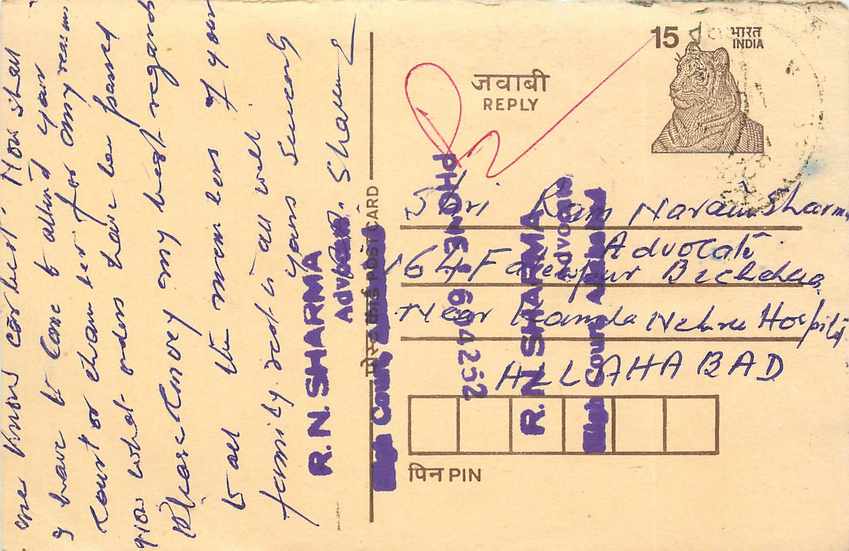 me know earliest. How shall
I have to come to attend your
court or chamber for any reason
now what orders have been passed
Please convey my best regards
to all the members of your
family. rest is all well.
yours sincerely
Sharma
R.N. SHARMA
Advocate
High Court,
पोस्ट कार्ड POST CARD
15
भारत
INDIA
जवाबी
REPLY
Shri Ram Narain Sharma
Advocate
164 Fatehpur Bichchua
Near Kamla Nehru Hospital
ALLAHABAD
PHONE
604252
R.N. SHARMA
Advocate
High Court, Allahabad
पिन PIN